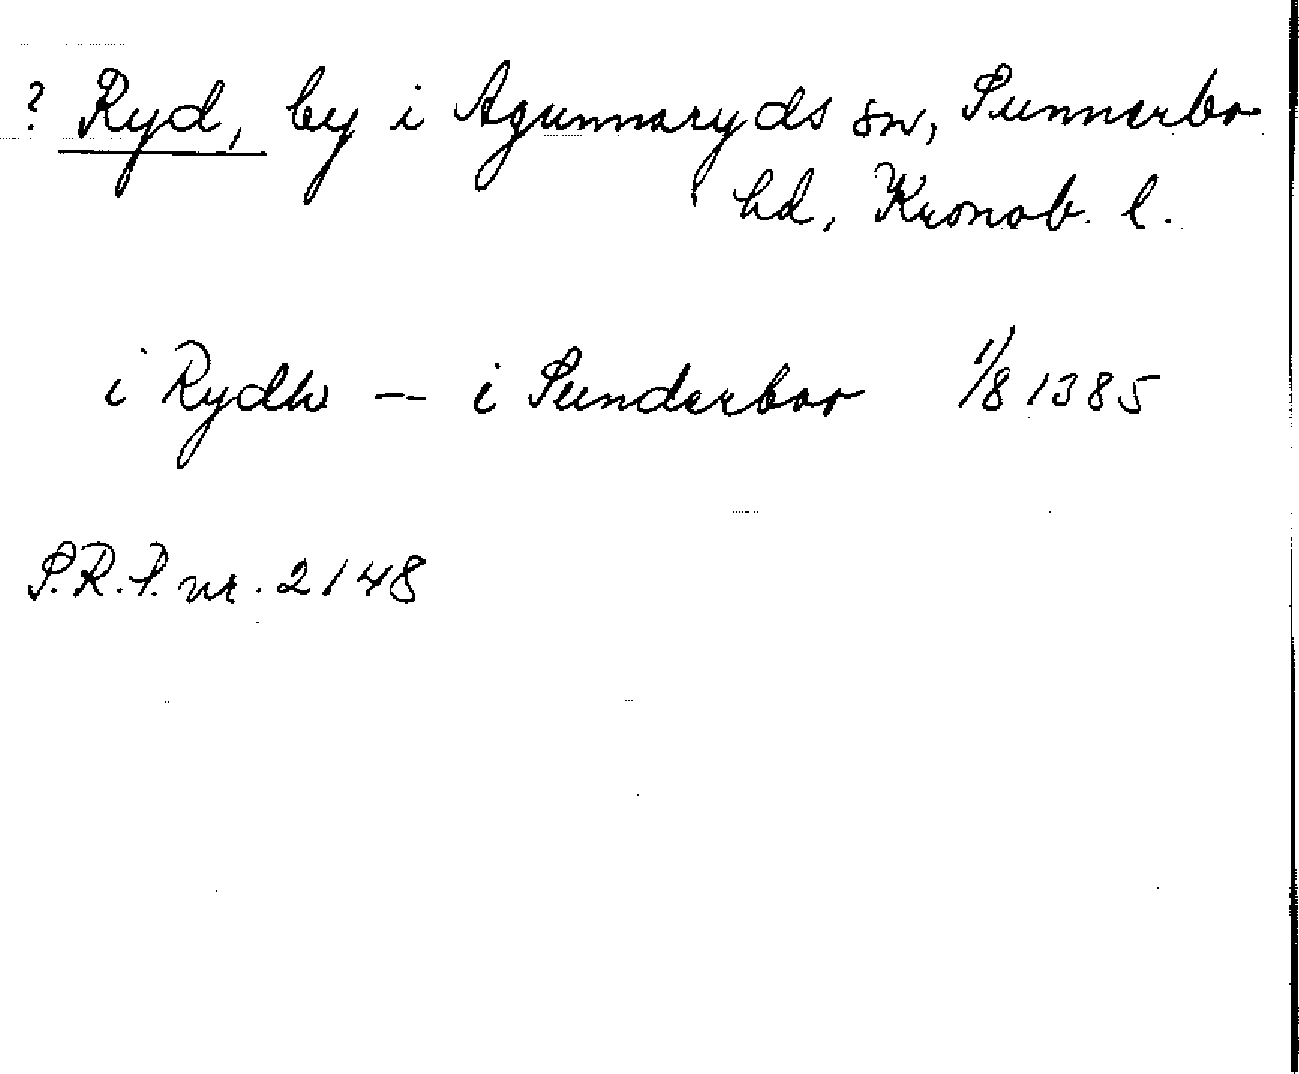 ? Ryd, by i Agunnaryds sn, Sunnerbo
hd, Kronob. l.
i Rydh -- i Sunderboo 1/8 1385
S.R.P. nr. 2148